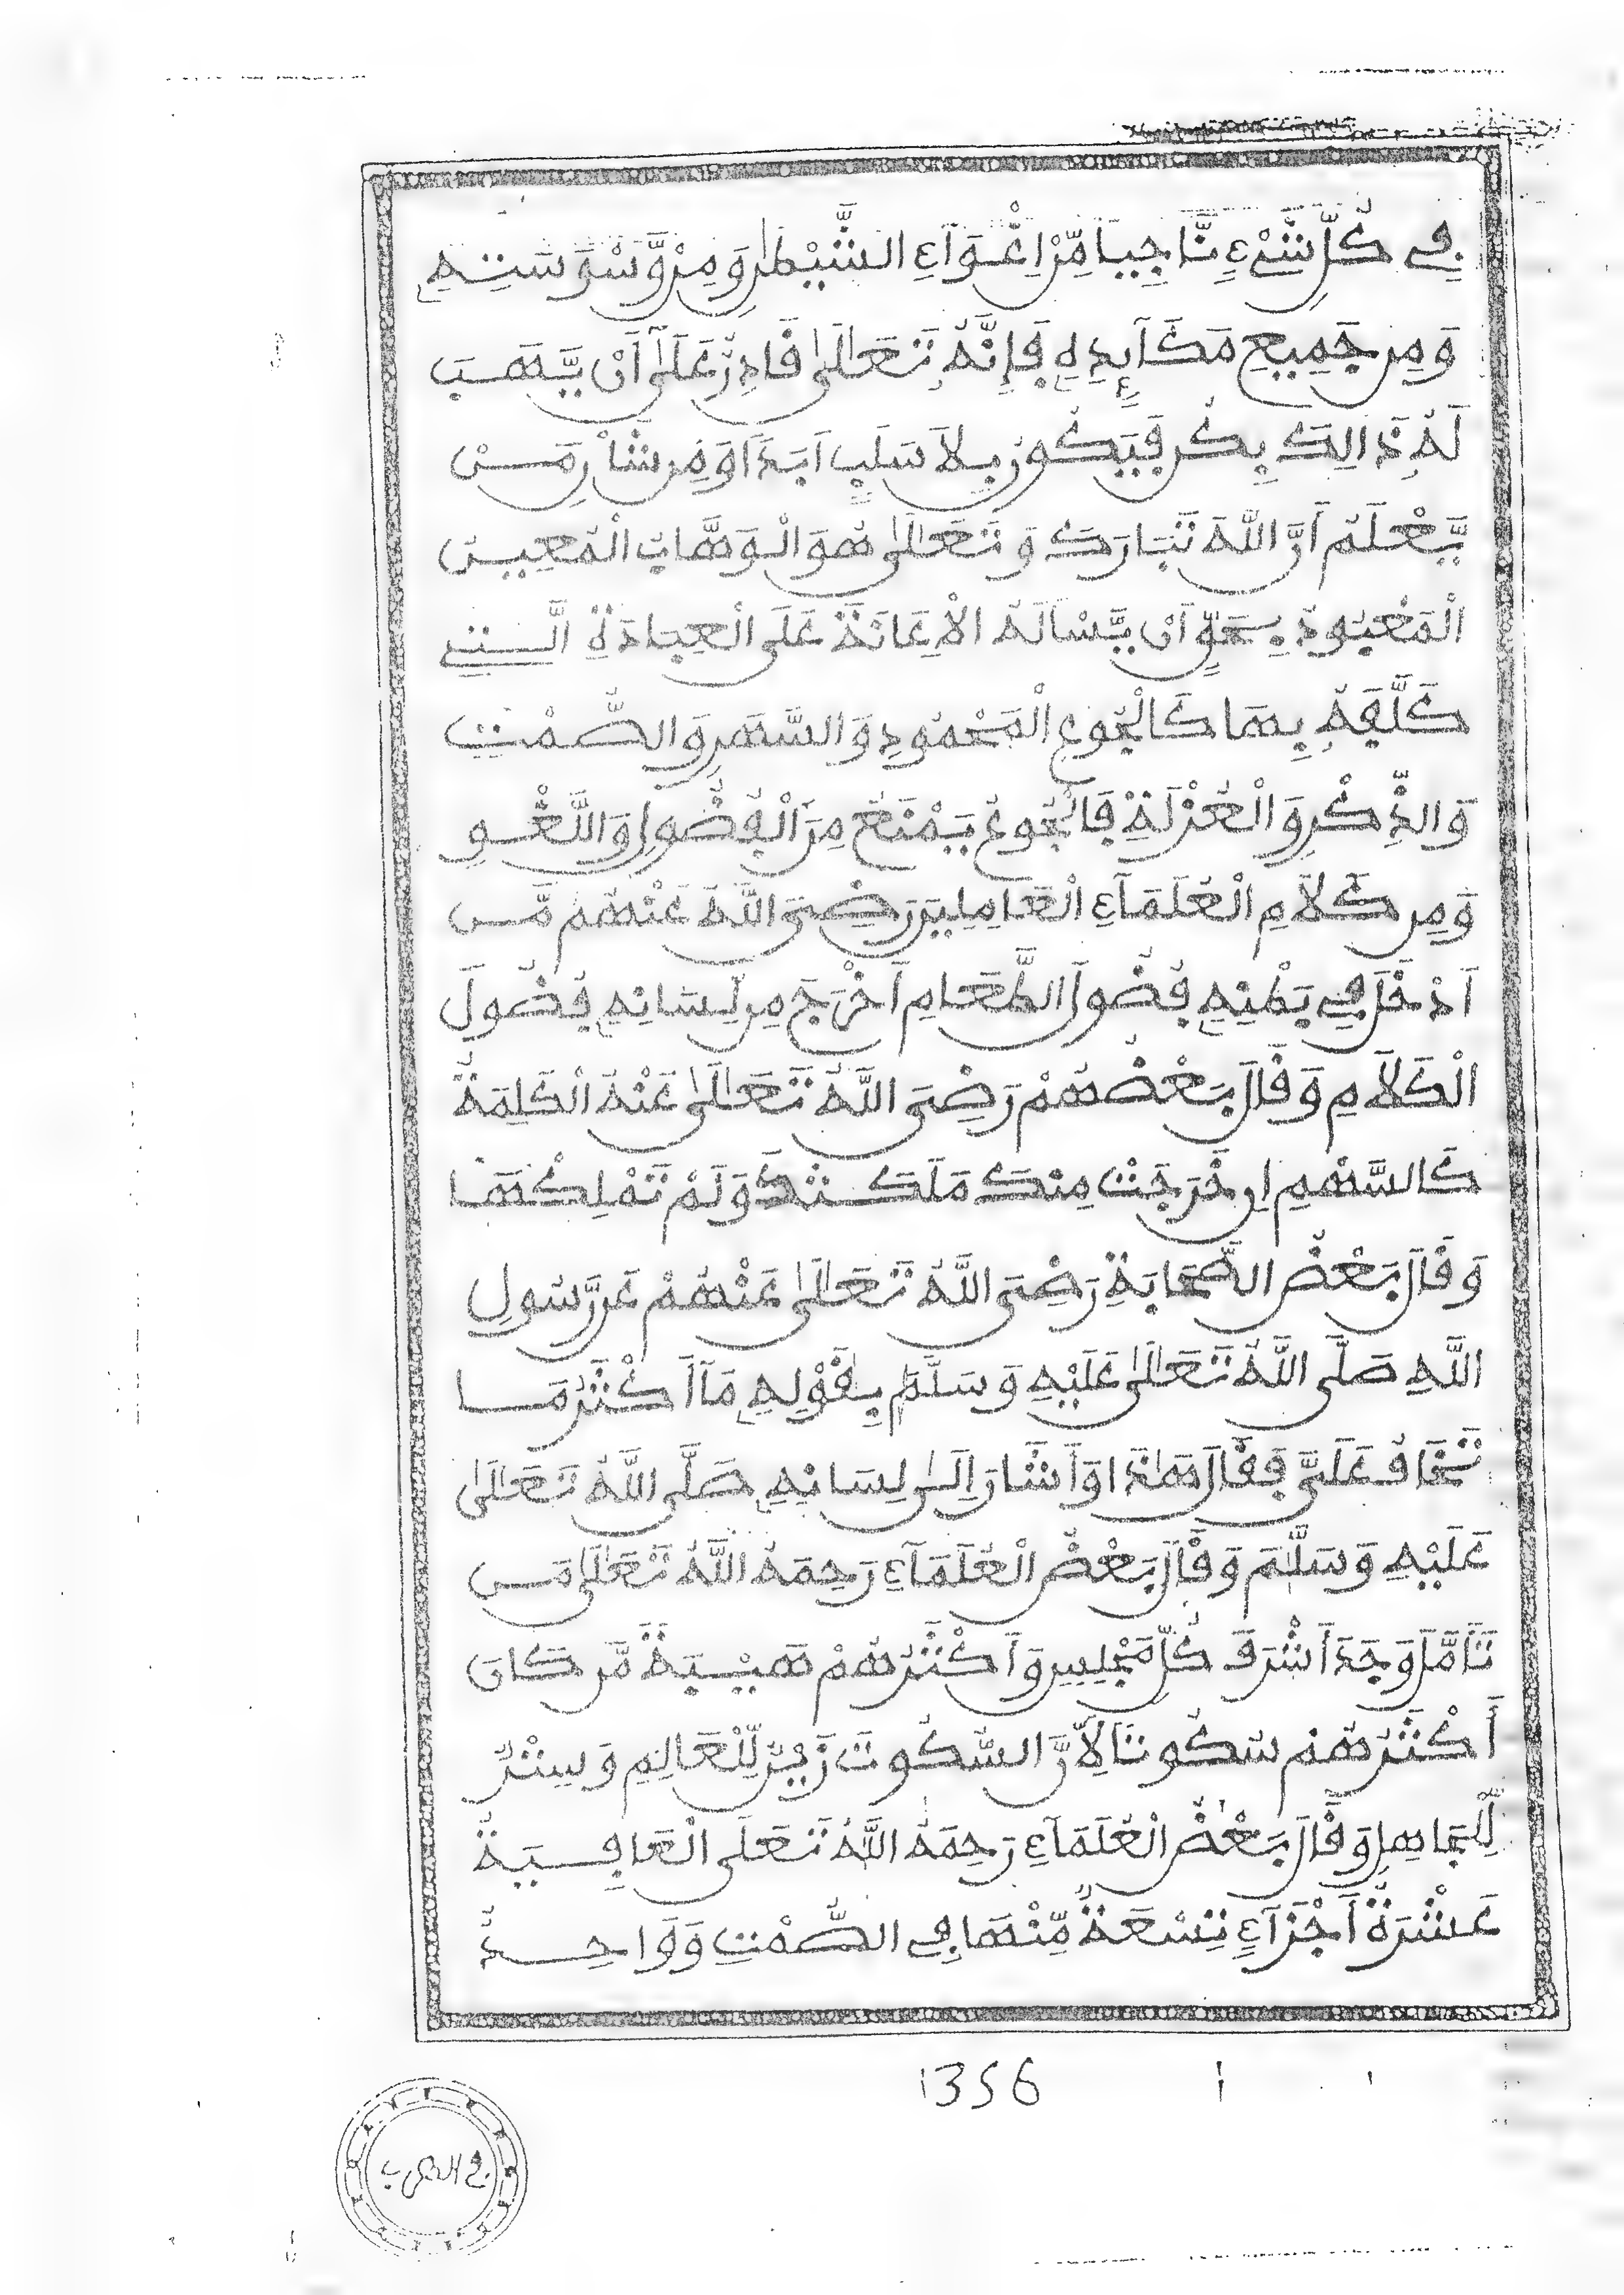 فِي كُلِّ شَيْءٍ نَّاجِيًا مِّنْ اِغْوَآءِ الشَّيْطٰنِ وَمِنْ وَّسْوَسَتِهِ
وَمِن جَمِيعِ مَكَآئِدِهِ فَإِنَّهُ تَعَالَىٰ قَادِرٌ عَلَىٰ أَنْ يَّهَبَ
لَهُ ذَالِكَ بِكُن فَيَكُونُ بِلَا سَلَبٍ اَبَدًا وَمِن شَأْنِ مَنْ
يَّعْلَمُ أَنَّ اللَّهَ تَبَارَكَ وَتَعَالَىٰ هُوَ الْوَهَّابُ الْمُعِينُ
الْمَعْبُودُ بِحَقٍّ أَنْ يَّسْأَلَهُ الْاِعَانَةَ عَلَى الْعِبَادَةِ الَّتِي
كَلَّفَهُ بِهَا كَالْجُوعِ الْمَحْمُودِ وَالسَّهَرِ وَالصَّمْتِ
وَالذِّكْرِ وَالْعُزْلَةِ فَالْجُوعُ يَمْنَعُ مِنَ الْفُضُولِ وَاللَّغْوِ
وَمِن كَلَامِ الْعُلَمَآءِ الْعَامِلِينَ رَضِيَ اللَّهُ عَنْهُمْ مَّنْ
اَدْخَلَ فِي بَطْنِهِ فُضُولَ الطَّعَامِ اَخْرَجَ مِن لِّسَانِهِ فُضُولَ
الْكَلَامِ وَقَالَ بَعْضُهُمْ رَضِيَ اللَّهُ تَعَالَىٰ عَنْهُ الْكَلِمَةُ
كَالسَّهْمِ اِن خَرَجَتْ مِنْكَ مَلَكَتْكَ وَلَمْ تَمْلِكْهَا
وَقَالَ بَعْضُ الصَّحَابَةِ رَضِيَ اللَّهُ تَعَالَىٰ عَنْهُمْ عَن رَّسُولِ
اللَّهِ صَلَّى اللَّهُ تَعَالَىٰ عَلَيْهِ وَسَلَّمَ بِقَوْلِهِ مَآ أَكْثَرُ مَا
تَخَافُ عَلَيَّ فَقَالَ هَٰذَا وَأَشَارَ إِلَىٰ لِسَانِهِ صَلَّى اللَّهُ تَعَالَىٰ
عَلَيْهِ وَسَلَّمَ وَقَالَ بَعْضُ الْعُلَمَآءِ رَحِمَهُ اللَّهُ تَعَالَىٰ مَنْ
تَأَمَّلَ وَجَدَ أَشْرَفَ كُلِّ مَجْلِسٍ وَأَكْثَرَهُمْ هَيْبَةً مَّن كَانَ
أَكْثَرَهُمْ سُكُوتًا لِأَنَّ السُّكُوتَ زَيْنٌ لِّلْعَالِمِ وَسِتْرٌ
لِّلْجَاهِلِ وَقَالَ بَعْضُ الْعُلَمَآءِ رَحِمَهُ اللَّهُ تَعَلَى الْعَافِيَةُ
عَشْرَةُ أَجْزَآءٍ تِسْعَةٌ مِّنْهَا فِي الصَّمْتِ وَوَاحِدٌ
1356